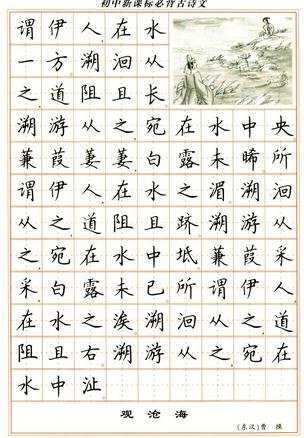 初中新课标必背古诗文
谓伊人在水
一方溯洄从
之道阻且长
溯游从之宛在水中央
蒹葭萋萋白露未晞所
谓伊人在水之湄溯洄
从之道阻且跻溯游从
之宛在水中坻蒹葭采
采白露未已所谓伊人
在水之涘溯洄从之道
阻且右溯游从之宛在
水中沚
观沧海
(东汉)曹操